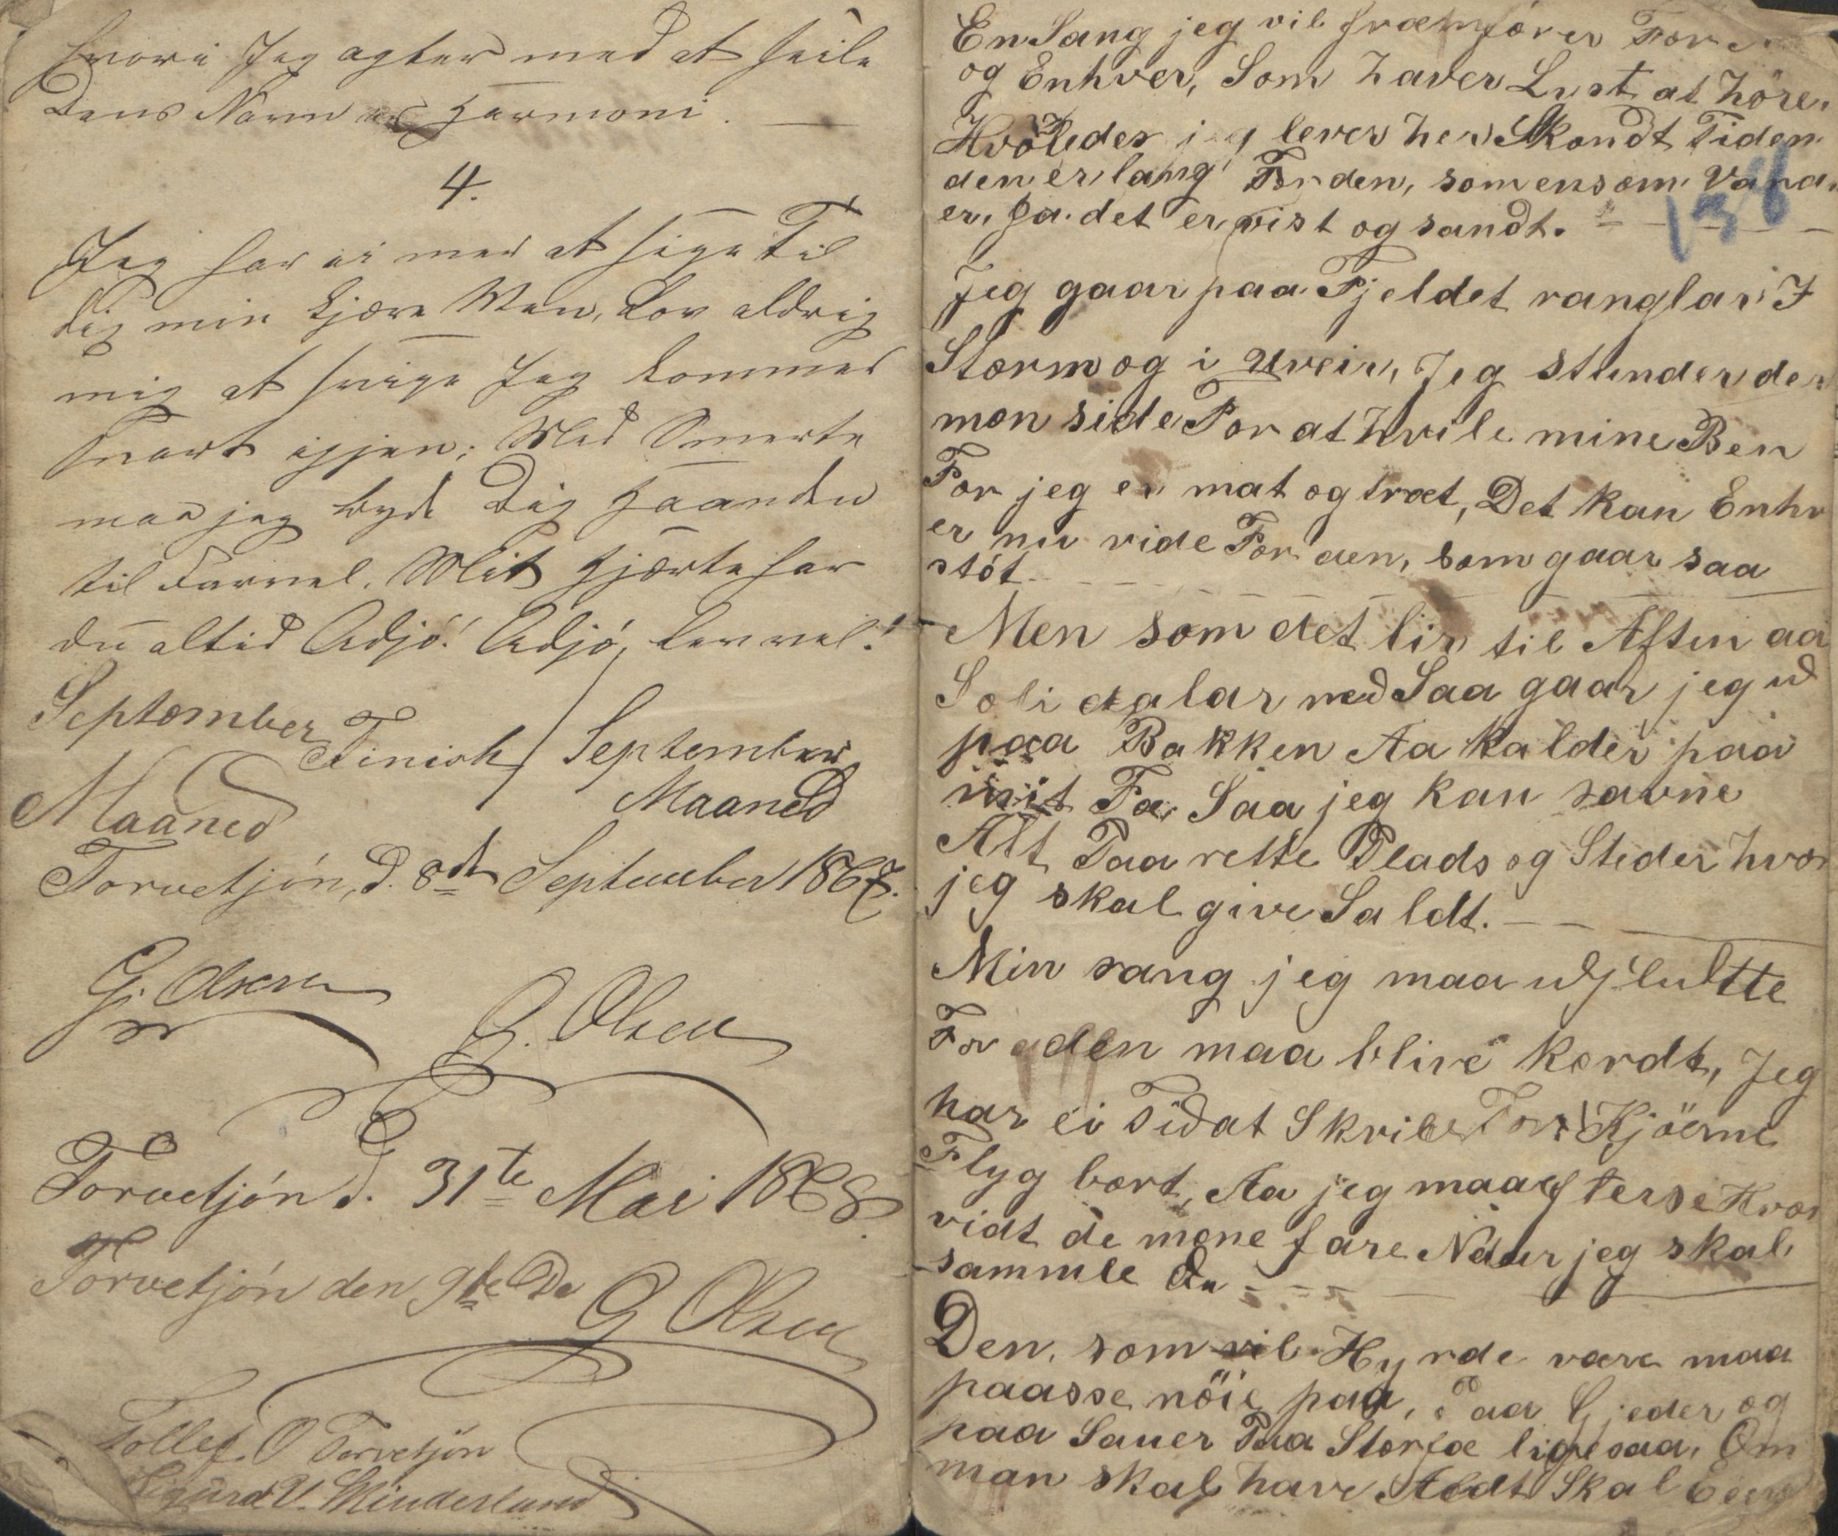 hvori Jeg agter med at seile
Dens Navn er Harmoni.
4.
Jeg har ei mer at sige Til
dig min kjære Ven, Lov aldrig
mig at svige Jeg kommer
snart igjen; Med Smerte
maa jeg byde Dig Haanden
til Farvel. Mit Hjærte har
du altid Adjó! Adjó, lev vel!
September Finish / September
Maaned Maaned
Torvetjón, d. 8dt September 1867.
G. Olsen
G. Olsen
Torvetjón d. 31te Mai 1868.
Torvetjón den 9te De
G Olsen
Tollef. O Torvetjön
Sigurd U. Skinderland
En Sang jeg vil fræmfører For
og Enhver, Som haver Lyst at höre,
Hvoledes jeg lever her Skondt Tiden
den er lang For den, som ensom Vand
er, Ja det er vist og sandt.
138
Jeg gaar paa Fjeldet ranglar I
Storm og i Uveir, Jeg stunder der
mon side For at hvile mine Ben
For jeg er mat og træt, Det kan Enhv
er nu vide For den, som gaar saa
stót
Men som det lir til Aften aa
Soli dalar ned Saa gaar jeg ud
paa Bakken Aa kalder paa
mit Fæ Saa jeg kan savne
Alt Paa rette Plads og Steder hvor
jeg skal give Saldt.
Min sang jeg maa udslutte
For den maa blive kordt, Jeg
har ei Tid at Skrive For Kjöerne
Flyg bort, Aa jeg maa efterse Hvor
vidt de mone fare Naar jeg skal
sammle
Den som vil Hyrde være maa
paasse nöie paa, Paa Gjeder og
paa Sauer Paa Storfæ ligesaa, Om
man skal have Aldt Skal